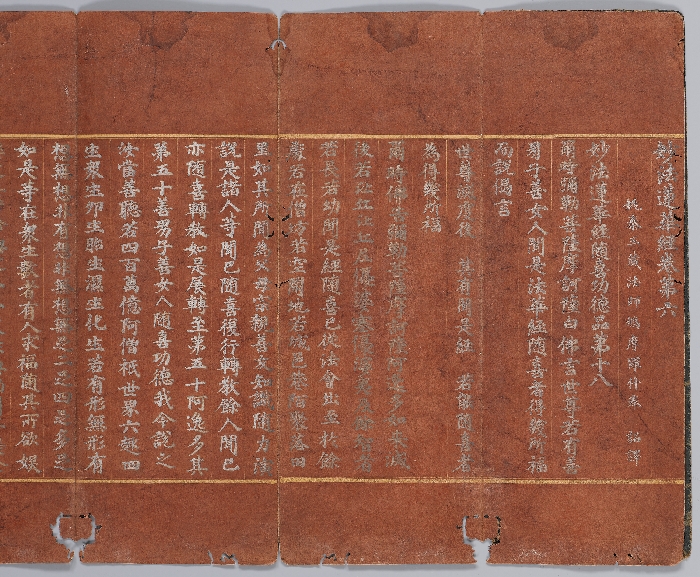 妙法蓮華經卷第六
姚秦三藏法師鳩摩羅什奉 詔譯
妙法蓮華經隨喜功德品第十八
爾時彌勒菩薩摩訶薩白佛言世尊若有善
男子善女人聞是法華經隨喜者得幾所福
而說偈言
世尊滅度後 其有聞是經 若能隨喜者
為得幾所福
爾時佛告彌勒菩薩摩訶薩阿逸多如來滅
後若比丘比丘尼優婆塞優婆夷及餘智者
若長若幼聞是經隨喜已從法會出至於餘
處若在僧坊若空閑地若城邑巷陌聚落田
里如其所聞為父母宗親善友知識隨力演
說是諸人等聞已隨喜復行轉教餘人聞已
亦隨喜轉教如是展轉至第五十阿逸多其
第五十善男子善女人隨喜功德我今說之
汝當善聽若四百萬億阿僧祇世界六趣四
生眾生卵生胎生濕生化生若有形無形有
想無想非有想非無想無足二足四足多足
如是等在眾生數者有人求福隨其所欲娛